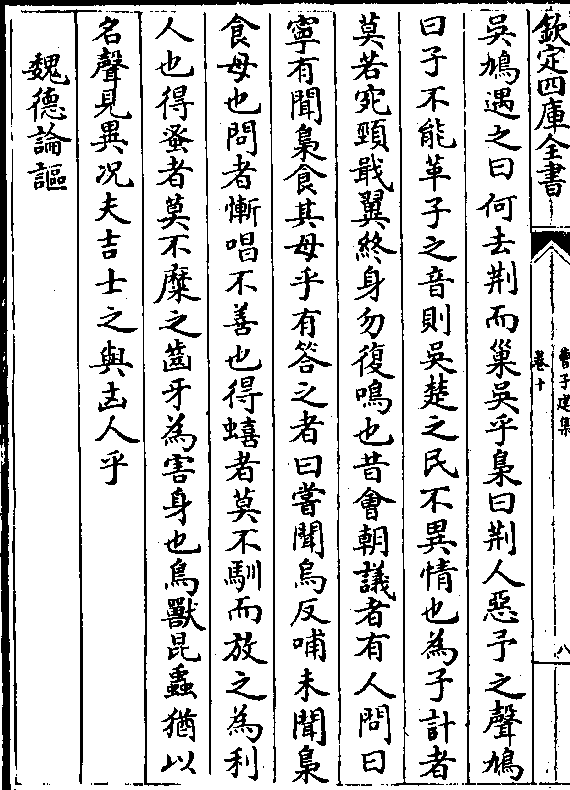 欽定四庫全書
曹子建集
卷十
八
吳鳩遇之曰何去荆而巢吳乎梟曰荆人惡予之聲鳩
曰子不能革子之音則吳楚之民不異情也為子計者
莫若宛頸戢翼終身勿復鳴也昔會朝議者有人問曰
寧有聞梟食其母乎有答之者曰嘗聞烏反哺未聞梟
食母也問者慚唱不善也得蟢者莫不馴而放之為利
人也得蚤者莫不糜之齒牙為害身也鳥獸昆蟲猶以
名聲見異况夫吉士之與凶人乎
魏德論謳